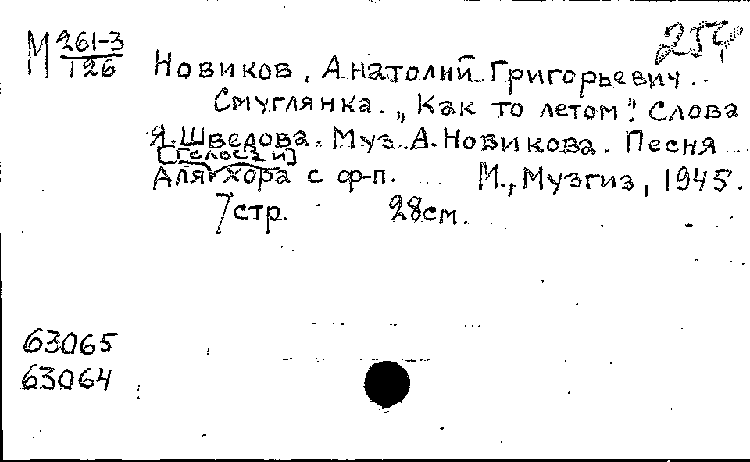 254
М 261-3
126
Новиков, Анатолий Григорьевич.
Смуглянка. „Как то летом". Слова
Я. Шведова. Муз. А. Новикова. Песня
[голоса и]
для хора с ф-п. М., Музгиз, 1945.
7 стр. 28 см.
63065
63064